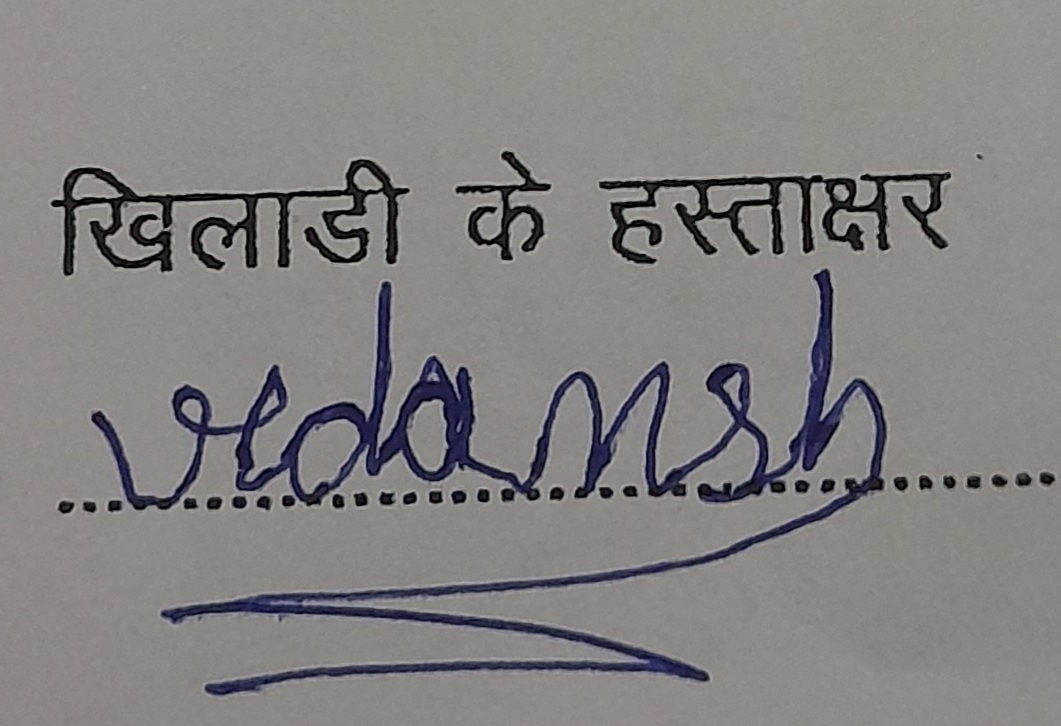 खिलाडी के हस्ताक्षर
vedansh